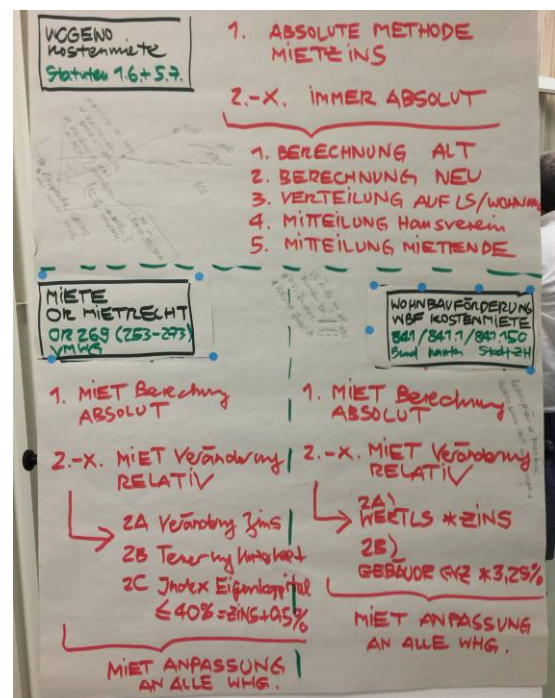 WOGENO
Kostenmiete
Statuten 1.6.+ 5.7.
1. ABSOLUTE METHODE
MIETZINS
2.-X. IMMER ABSOLUT
1. BERECHNUNG ALT
2. BERECHNUNG NEU
3. VERTEILUNG AUF LS/WOHNUNG
4. MITTEILUNG Hausverein
5. MITTEILUNG MIETENDE
MIETE
OR MIETRECHT
OR 269 (253-273)
VMWG
1. MIET Berechnung
ABSOLUT
2.-X. MIET Veränderung
RELATIV
2A Veränderung Zins
2B Teuerung Unterhalt
2C Index Eigenkapital
≤ 40% = ZINS + 0,5%
MIET ANPASSUNG
AN ALLE WHG.
WOHNBAUFÖRDERUNG
WBF KOSTENMIETE
841 / 841.1 / 841.150
Bund Kanton Stadt ZH
1. MIET Berechnung
ABSOLUT
2.-X. MIET Veränderung
RELATIV
2A)
WERT LS * ZINS
2B)
GEBÄUDE * 3,25%
MIET ANPASSUNG
AN ALLE WHG.